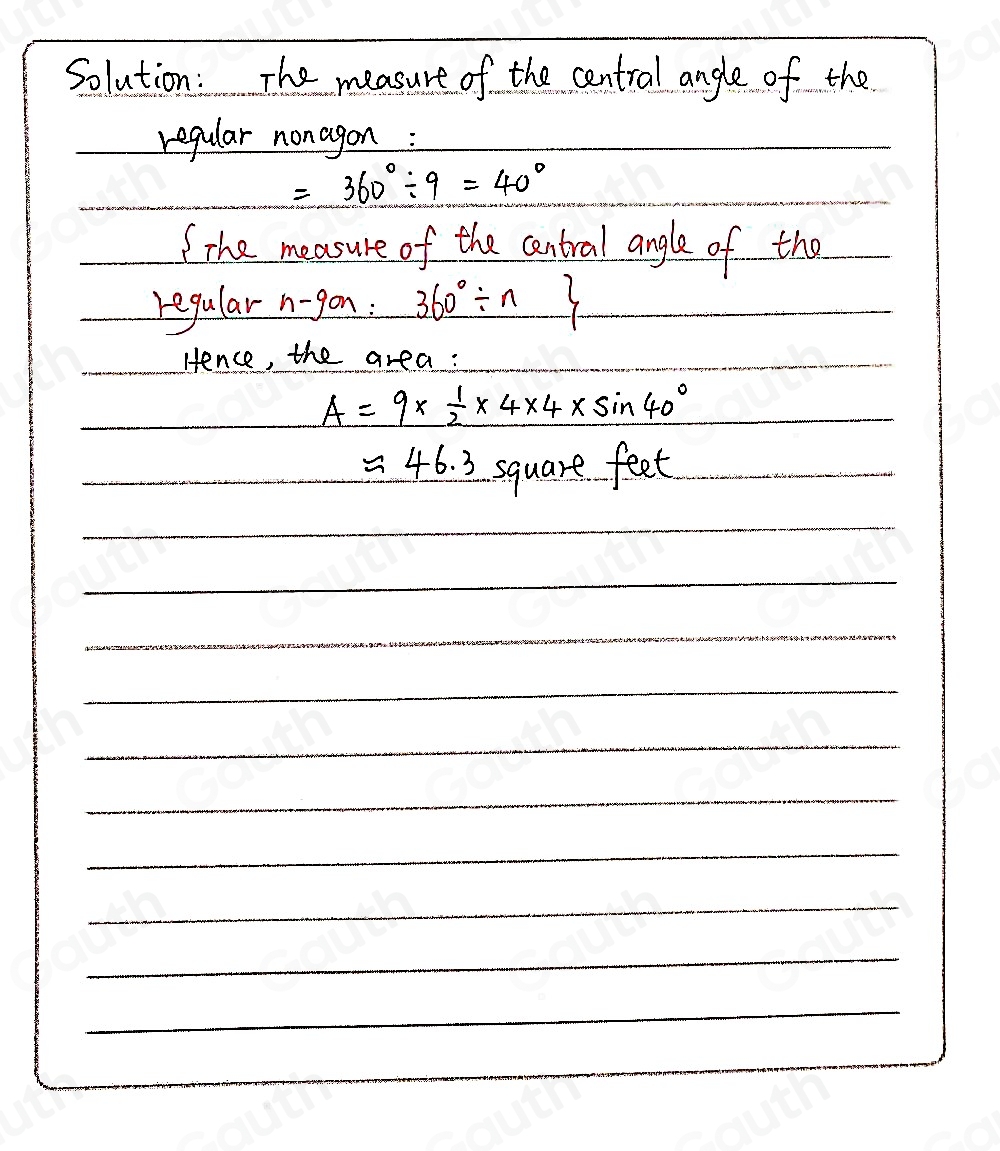 Solution: The measure of the central angle of the
regular nonagon :
= 360° ÷ 9 = 40°
{The measure of the central angle of the
regular n-gon: 360° ÷ n }
Hence, the area:
A = 9 × 1/2 × 4 × 4 × sin 40°
≈ 46.3 square feet
Gauth